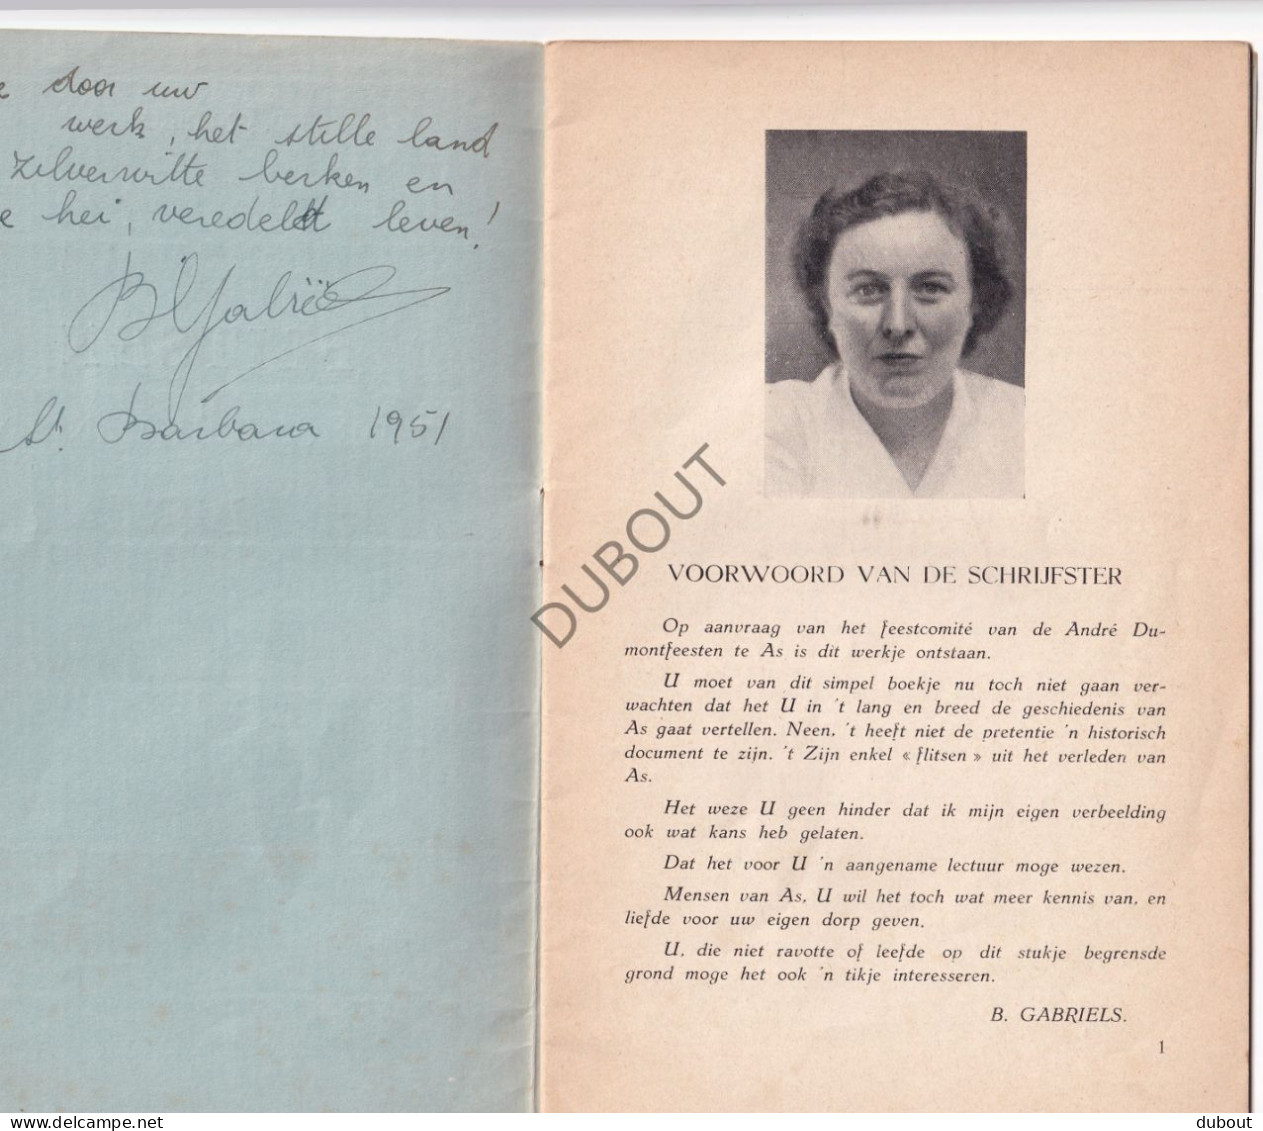 door uw
werk, het stille land
zilverwitte berken en
hei, veredeldt leven!
B Gabriëls
St. Barbara 1951
VOORWOORD VAN DE SCHRIJFSTER
Op aanvraag van het feestcomité van de André Du-
montfeesten te As is dit werkje ontstaan.
U moet van dit simpel boekje nu toch niet gaan ver-
wachten dat het U in 't lang en breed de geschiedenis van
As gaat vertellen. Neen, 't heeft niet de pretentie 'n historisch
document te zijn. 't Zijn enkel « flitsen » uit het verleden van
As.
Het weze U geen hinder dat ik mijn eigen verbeelding
ook wat kans heb gelaten.
Dat het voor U 'n aangename lectuur moge wezen.
Mensen van As, U wil het toch wat meer kennis van, en
liefde voor uw eigen dorp geven.
U, die niet ravotte of leefde op dit stukje begrensde
grond moge het ook 'n tikje interesseren.
B. GABRIELS.
1
DUBOUT
delcampe.net
dubout